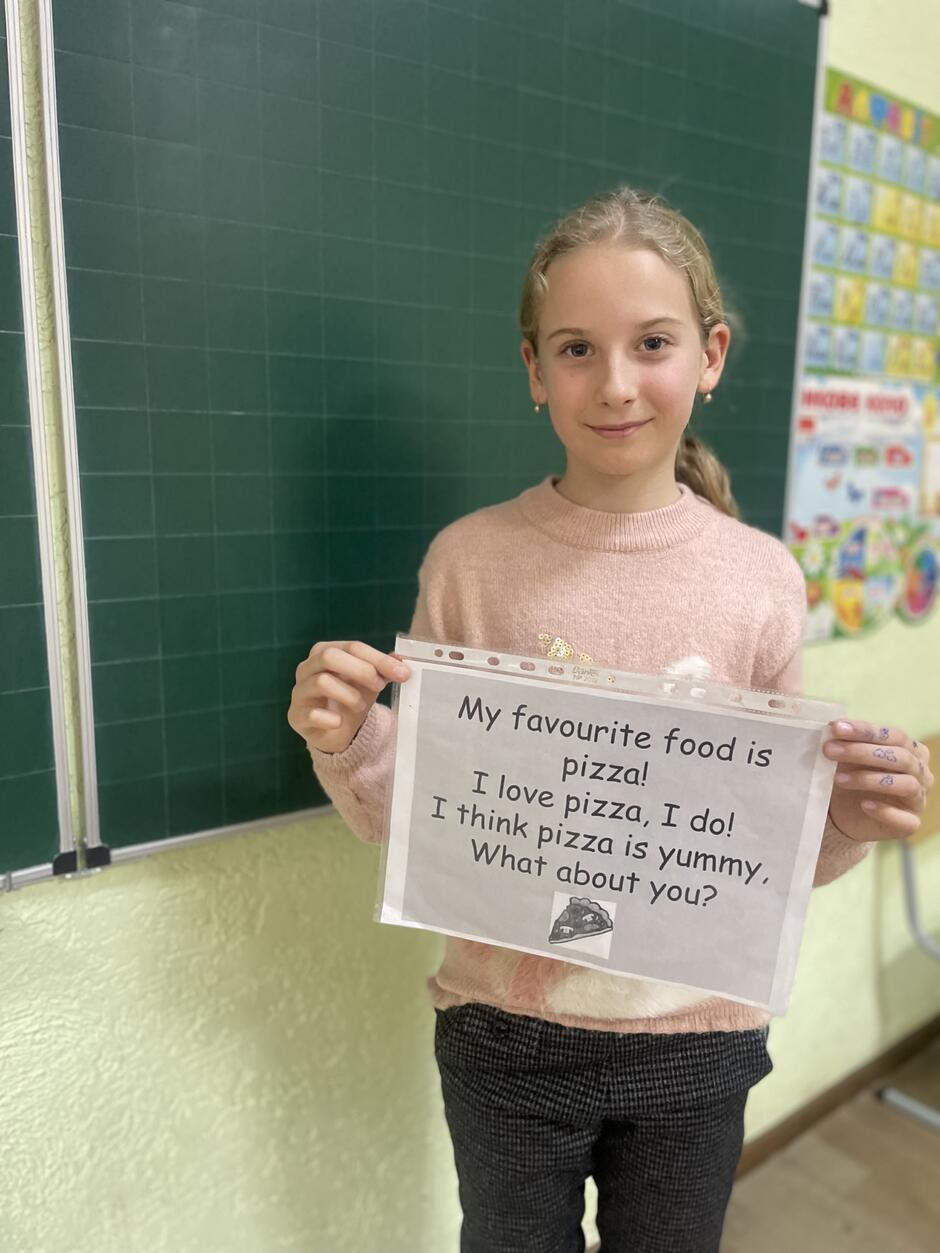 My favourite food is
pizza!
I love pizza, I do!
I think pizza is yummy,
What about you?